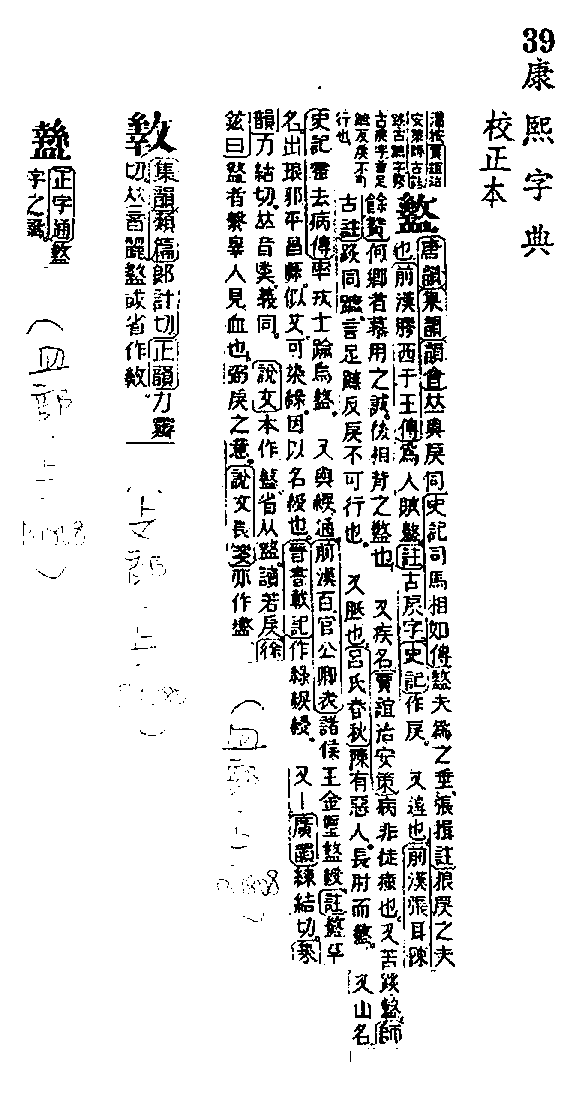 39
康熙字典
校正本
安策師古註
古戾字言足
行也
盭
唐韻集韻韻會𠀤與戾同史記司馬相如傳盭夫為之垂張揖註狼戾之夫
也前漢膠西于王傳為人賊盭註古戾字史記作戾。 又違也前漢張耳陳
餘贊何鄉者慕用之誠後相背之盭也 又疾名賈誼治安策病非徒瘇也又苦𨂂盭師
古註𨂂同蹠言足蹠反戾不可行也。 又胝也呂氏春秋陳有惡人長肘而盭。 又山名
史記霍去病傳率戎士踰烏盭。 又與綟通前漢百官公卿表諸侯王金璽盭綬註盭草
名出琅邪平昌縣似艾可染綠因以名綬也晉書載記作綠綟綬。 又一廣韻練結切集
韻力結切𠀤音戾義同。 說文本作盭省从盩讀若戾徐
鉉曰盩者擊辠人見血也弼戾之意說文長箋亦作盭
(血部·上 p.808)
集韻類篇郎計切正韻力霽
切𠀤音麗盭或省作
正字通盭
字之譌
(血部·上 p.808)